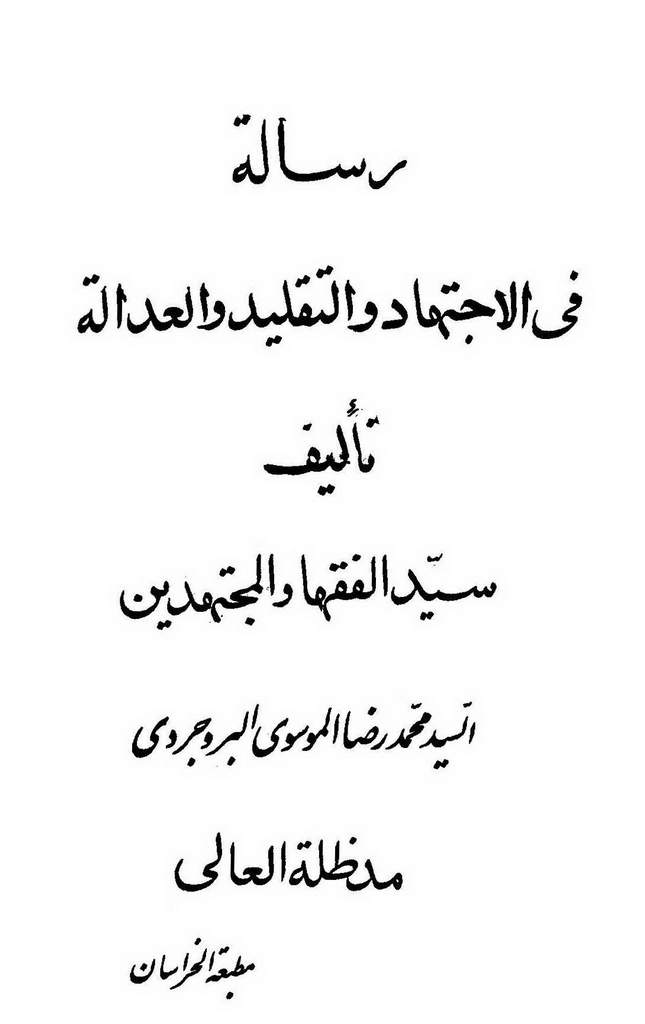 رسالة
فى الاجتهاد والتقليد والعدالة
تأليف
سيّد الفقها والمجتهدين
السّيد محمّد رضا الموسوى البروجردى
مدظلة العالى
مطبعة الخراسان